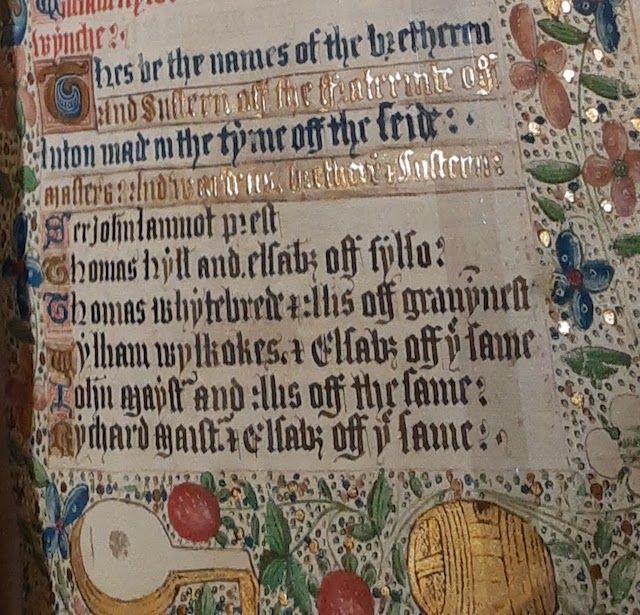 wynche:
Thes be the names of the bretheren
and Sustern off the ffraternite off
luton mad in the tyme off the seide:
masters: And wardens, brethere & Sustern:
Ser John lammot prest
Thomas hyll and elsabꝫ off sylso:
Thomas whytebrede & Alis off grauynest
Wylliam wylkokes & Elsabꝫ off yͤ same
John mayst and Alis off the same:
Rychard maist & Elsabꝫ off yͤ same: